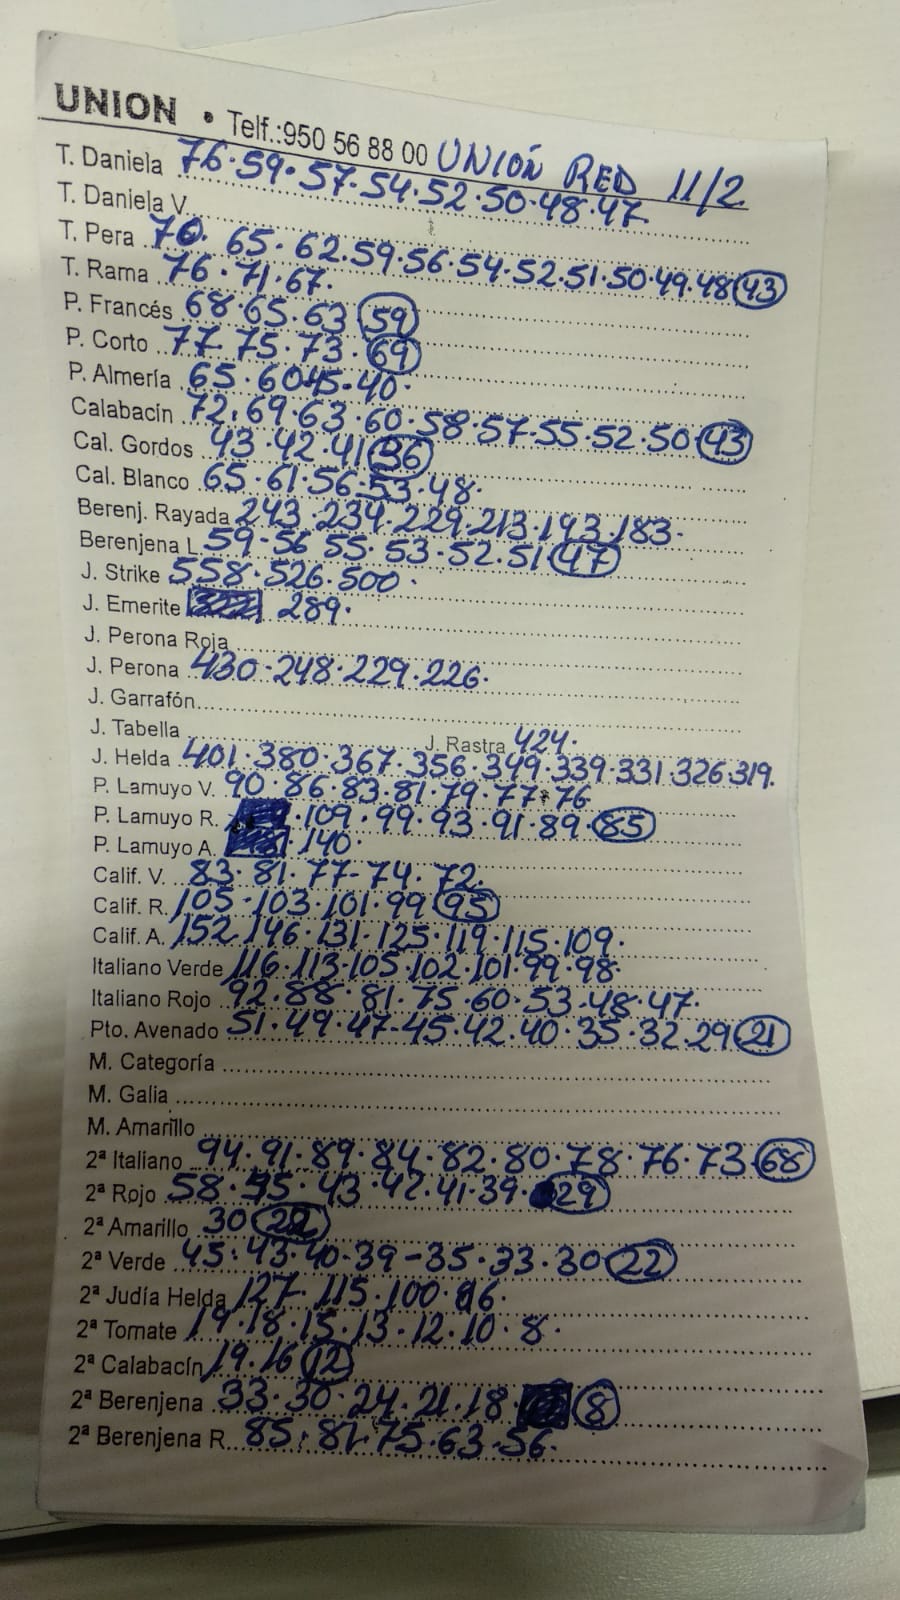 UNION • Telf.:950 56 88 00 UNIÓN RED 11/2
T. Daniela 76·59·57·54·52·50·48·47
T. Daniela V.
T. Pera 70. 65. 62.59.56.54.52.51.50.49.48 43
T. Rama 76·71·67.
P. Francés 68·65·63 59
P. Corto 77 75·73·69
P. Almería 65·60·45·40·
Calabacín 72.69·63·60·58·57·55·52·50 43
Cal. Gordos 43·42·41 36
Cal. Blanco 65·61·56·53·48.
Berenj. Rayada 243·234·229.213·193·183.
Berenjena L 59·56 55·53·52·51 47
J. Strike 558·526·500·
J. Emerite 289·
J. Perona Roja
J. Perona 430·248·229·226.
J. Garrafón
J. Tabella J. Rastra 424·
J. Helda 401·380·367·356·349·339·331·326·319.
P. Lamuyo V. 90·86·83·81·79·77·76
P. Lamuyo R. ·109·99·93·91·89·85
P. Lamuyo A. 140·
Calif. V. 83·81·77-74·72.
Calif. R. 105·103·101·99 95
Calif. A. 152 146·131·125·119·115·109.
Italiano Verde 116·113·105·102·101·99·98·
Italiano Rojo 92·88·81·75·60·53·48·47·
Pto. Avenado 51·49·47-45·42·40·35·32·29 21
M. Categoría
M. Galia
M. Amarillo
2ª Italiano 94·91·89·84·82·80·78·76·73·68
2ª Rojo 58·55·43·42·41·39· 29
2ª Amarillo 30 22
2ª Verde 45·43·40·39-35·33·30 22
2ª Judía Helda 127·115·100·
2ª Tomate 19·18·15·13·12·10·8·
2ª Calabacín 19·16 12
2ª Berenjena 33·30·24·21·18· 8
2ª Berenjena R. 85·81·75·63·56·